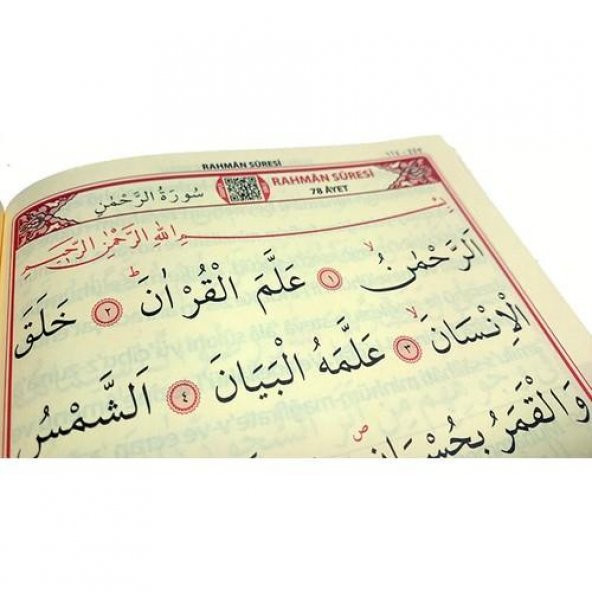 RAHMÂN SÛRESİ
سُورَةُ الرَّحْمٰنِ
RAHMÂN SÛRESİ
78 ÂYET
بِسْمِ اللّٰهِ الرَّحْمٰنِ الرَّحِيمِ
اَلرَّحْمٰنُۙ ﴿١﴾ عَلَّمَ الْقُرْاٰنَۜ ﴿٢﴾ خَلَقَ
الْاِنْسَانَۙ ﴿٣﴾ عَلَّمَهُ الْبَيَانَ ﴿٤﴾ اَلشَّمْسُ
وَالْقَمَرُ بِحُسْبَانٍۖ